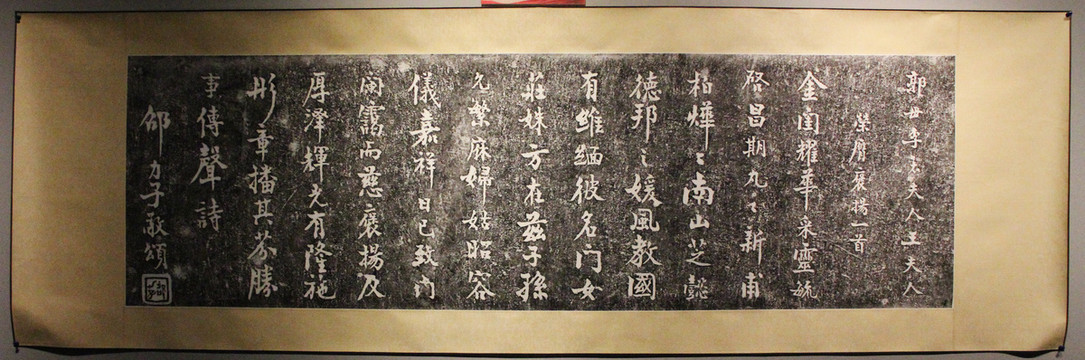 郭母李太夫人王夫人
榮膺褒揚一首
金閨耀華采靈毓
啓昌期丸丸新甫
柏燁燁南山芝懿
德邦之媛風教國
有維緬彼名門女
莊姝方在茲子孫
允繁庥婦姑昭容
儀嘉祥日已致内
闽霭而慈褒揚及
厚澤輝光有隆施
彤章播其芬勝
事傳聲詩
邵力子敬頌